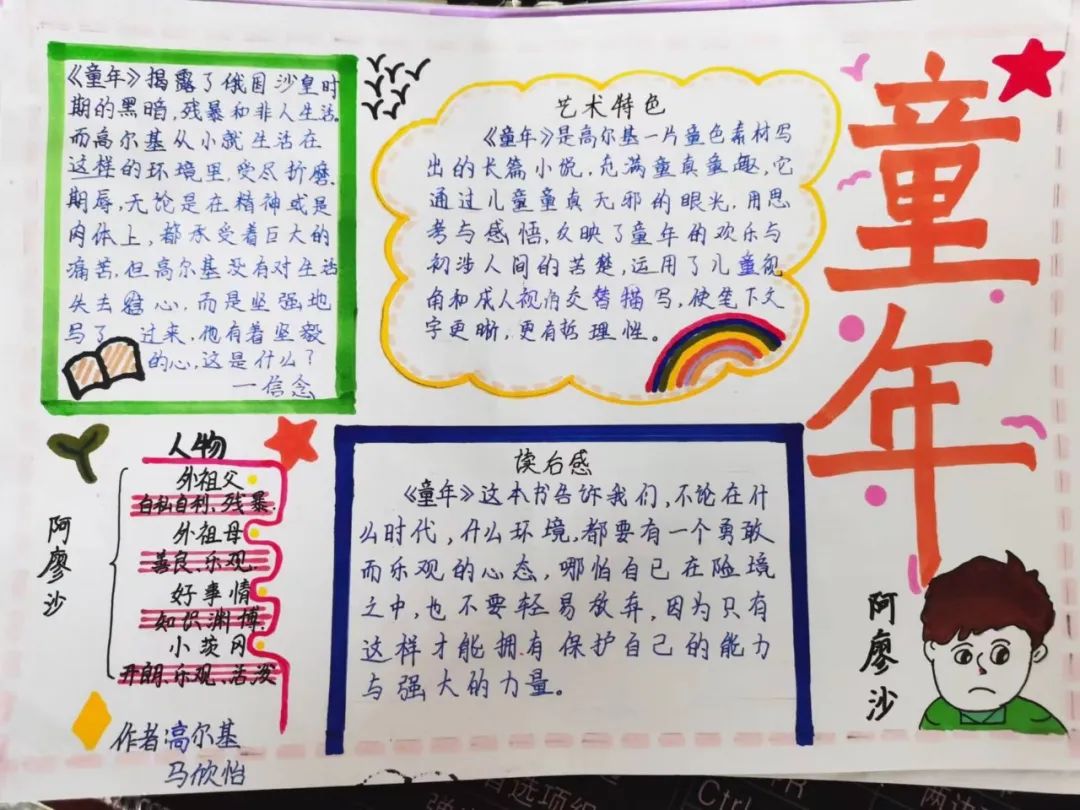 《童年》揭露了俄国沙皇时
期的黑暗,残暴和非人生活.
而高尔基从小就生活在
这样的环境里,受尽折磨.
期辱,无论是在精神或是
肉体上,都承受着巨大的
痛苦,但高尔基没有对生活
失去 心,而是坚强地
写了 过来,他有着坚毅
的心,这是什么?
一信念
艺术特色
《童年》是高尔基一片童色素材写
出的长篇小说,充满童真童趣,它
通过儿童童真无邪的眼光,用思
考与感悟,反映了童年的欢乐与
初涉人间的苦楚,运用了儿童视
角和成人视角交替描写,使笔下文
字更晰,更有哲理性。
童年
人物
外祖父
自私自利、残暴.
外祖母
善良、乐观.
好事情
知识渊博.
小茨冈
开朗、乐观、活泼
阿廖沙
作者:高尔基
马欣怡
读后感
《童年》这本书告诉我们,不论在什
么时代,什么环境,都要有一个勇敢
而乐观的心态,哪怕自己在险境
之中,也不要轻易放弃,因为只有
这样才能拥有保护自己的能力
与强大的力量。
阿廖沙
Ctrl